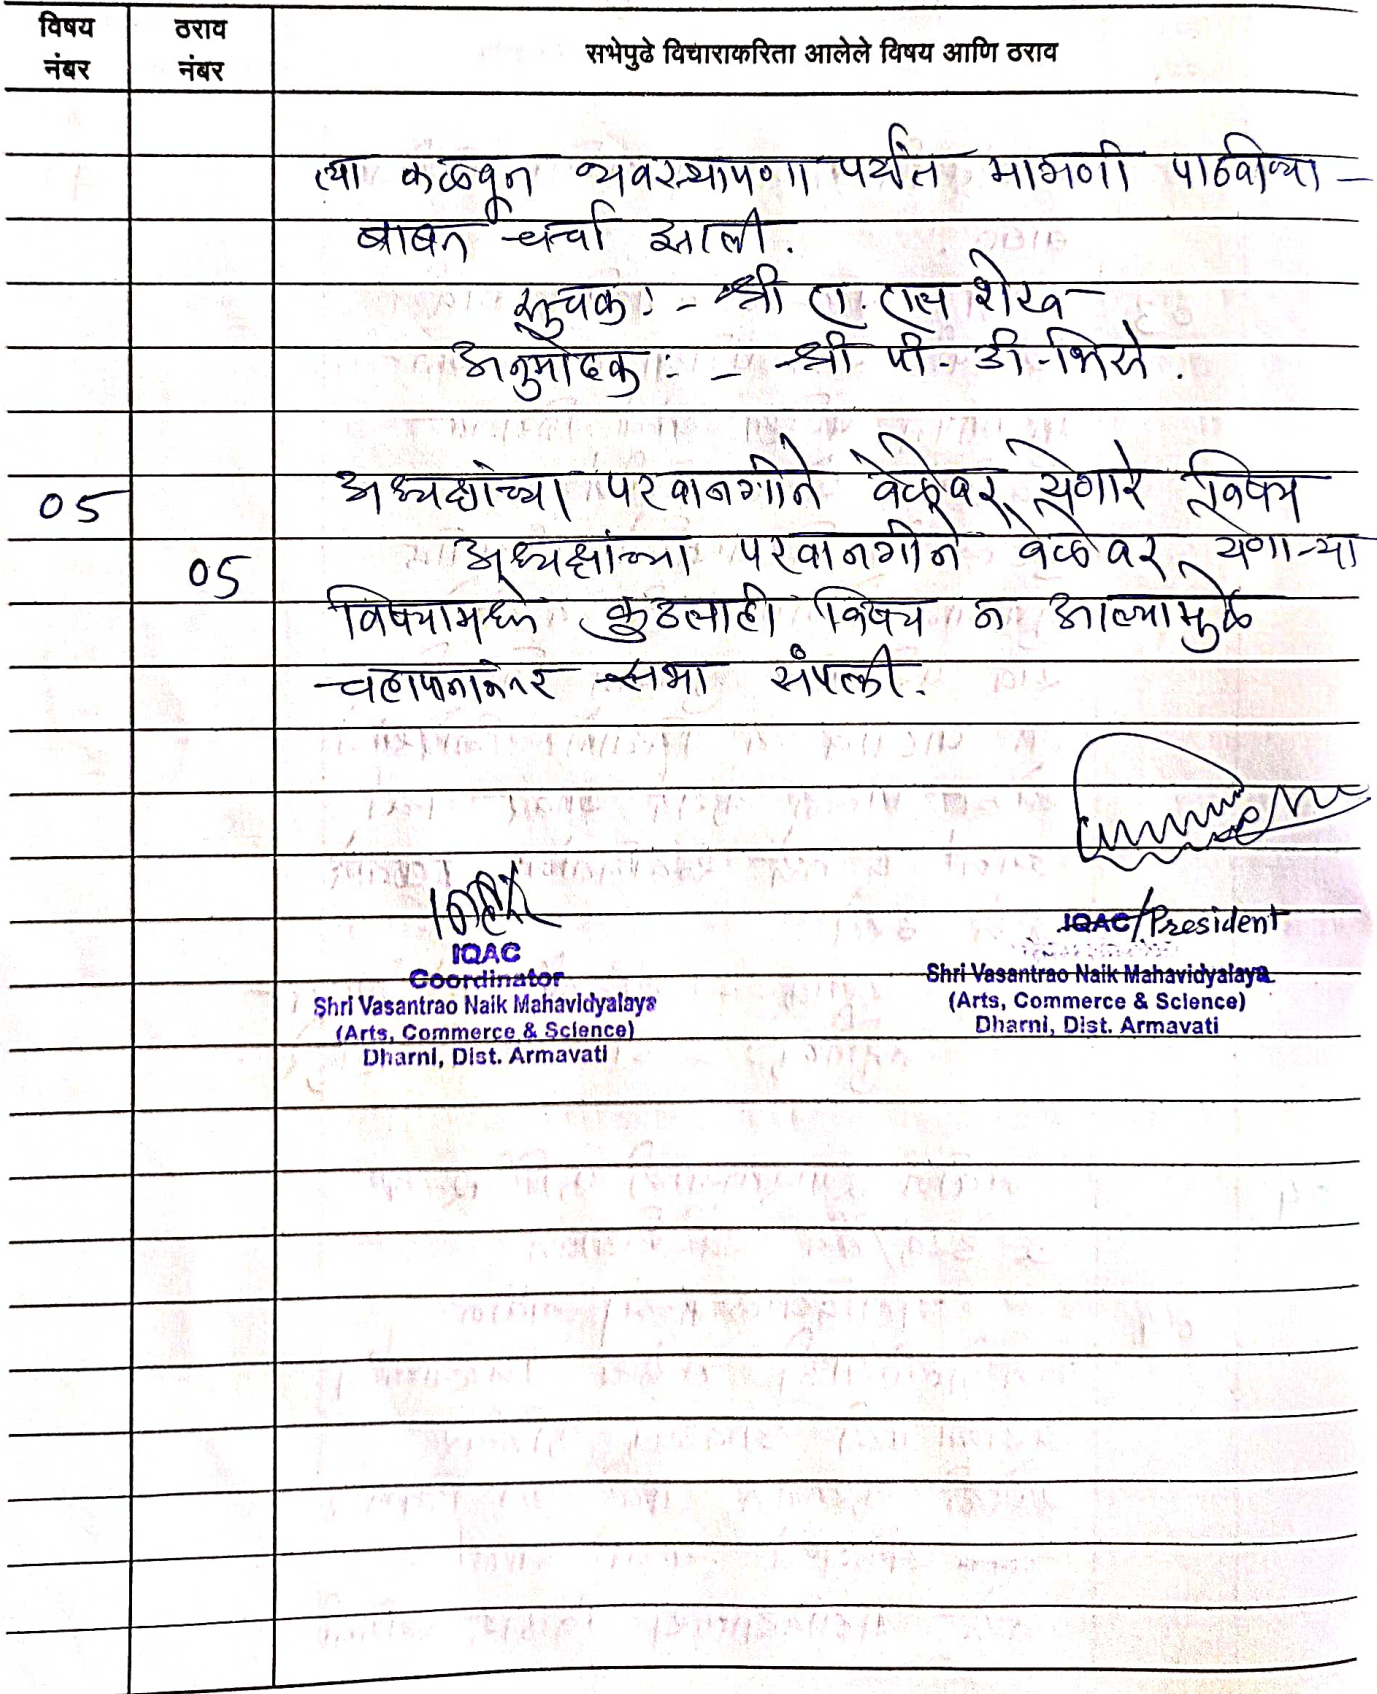 विषय नंबर
ठराव नंबर
सभेपुढे विचाराकरिता आलेले विषय आणि ठराव
त्या कळवून व्यवस्थापणा पर्यंत मागणी पाठवीण्या -
बाबत चर्चा झाली.
सुचक :- श्री एस. शेख
अनुमोदक :- - श्री पी. डी. भिसे.
05 अध्यक्षांच्या परवानगीने वेळेवर येणारे विषय
05 अध्यक्षांच्या परवानगीने वेळेवर येणाऱ्या
विषयामध्ये कुठलाही विषय न आल्यामुळे
चहापानानंतर सभा संपली.
IQAC
Coordinator
Shri Vasantrao Naik Mahavidyalaya
(Arts, Commerce & Science)
Dharni, Dist. Armavati
IQAC/President
Shri Vasantrao Naik Mahavidyalaya
(Arts, Commerce & Science)
Dharni, Dist. Armavati